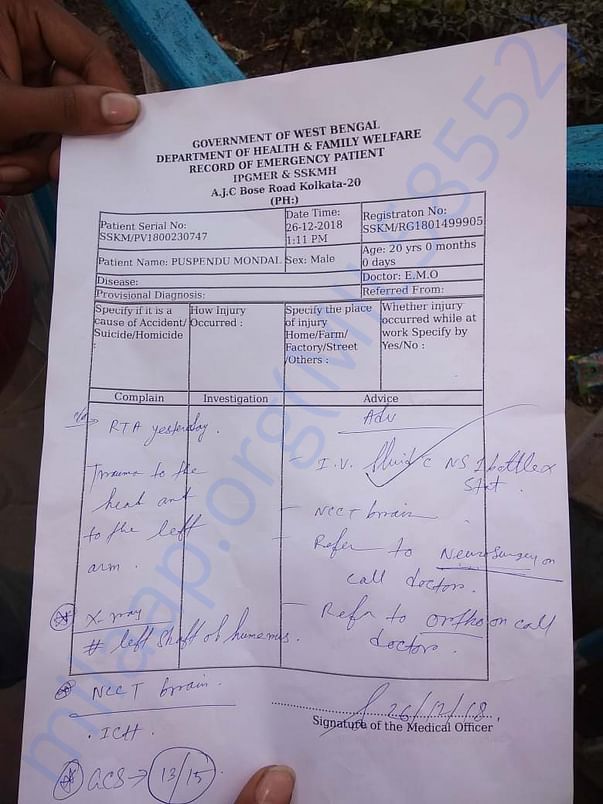 GOVERNMENT OF WEST BENGAL
DEPARTMENT OF HEALTH & FAMILY WELFARE
RECORD OF EMERGENCY PATIENT
IPGMER & SSKMH
A.J.C Bose Road Kolkata-20
(PH:)
Patient Serial No:
SSKM/PV1800230747
Date Time:
26-12-2018
1:11 PM
Registraton No:
SSKM/RG1801499905
Patient Name: PUSPENDU MONDAL
Sex: Male
Age: 20 yrs 0 months
0 days
Disease:
Doctor: E.M.O
Provisional Diagnosis:
Referred From:
Specify if it is a
cause of Accident/
Suicide/Homicide
:
How Injury
Occurred :
Specify the place
of injury
Home/Farm/
Factory/Street
/Others :
Whether injury
occurred while at
work Specify by
Yes/No :
Complain
Investigation
Advice
RTA yesterday.
Trauma to the
head and
to the left
arm.
X-ray
# left shaft of humerus.
NCCT brain.
. ICH.
GCS → 13/15
Adv
- I.V. fluid c NS 1 bottle x
stat.
- NCCT brain.
- Refer to Neurosurgery on
call doctors.
- Refer to ortho on call
doctors.
26/12/18.
Signature of the Medical Officer